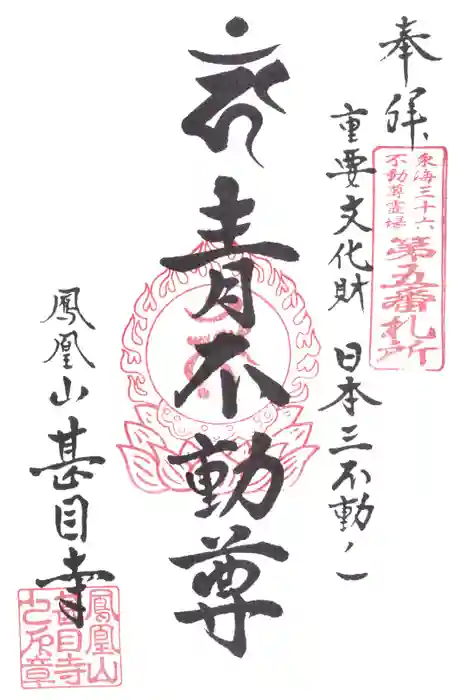 奉拝
東海三十六
不動尊霊場
第五番札所
重要文化財 日本三不動ノ一
青不動尊
鳳凰山甚目寺
鳳凰山
甚目寺